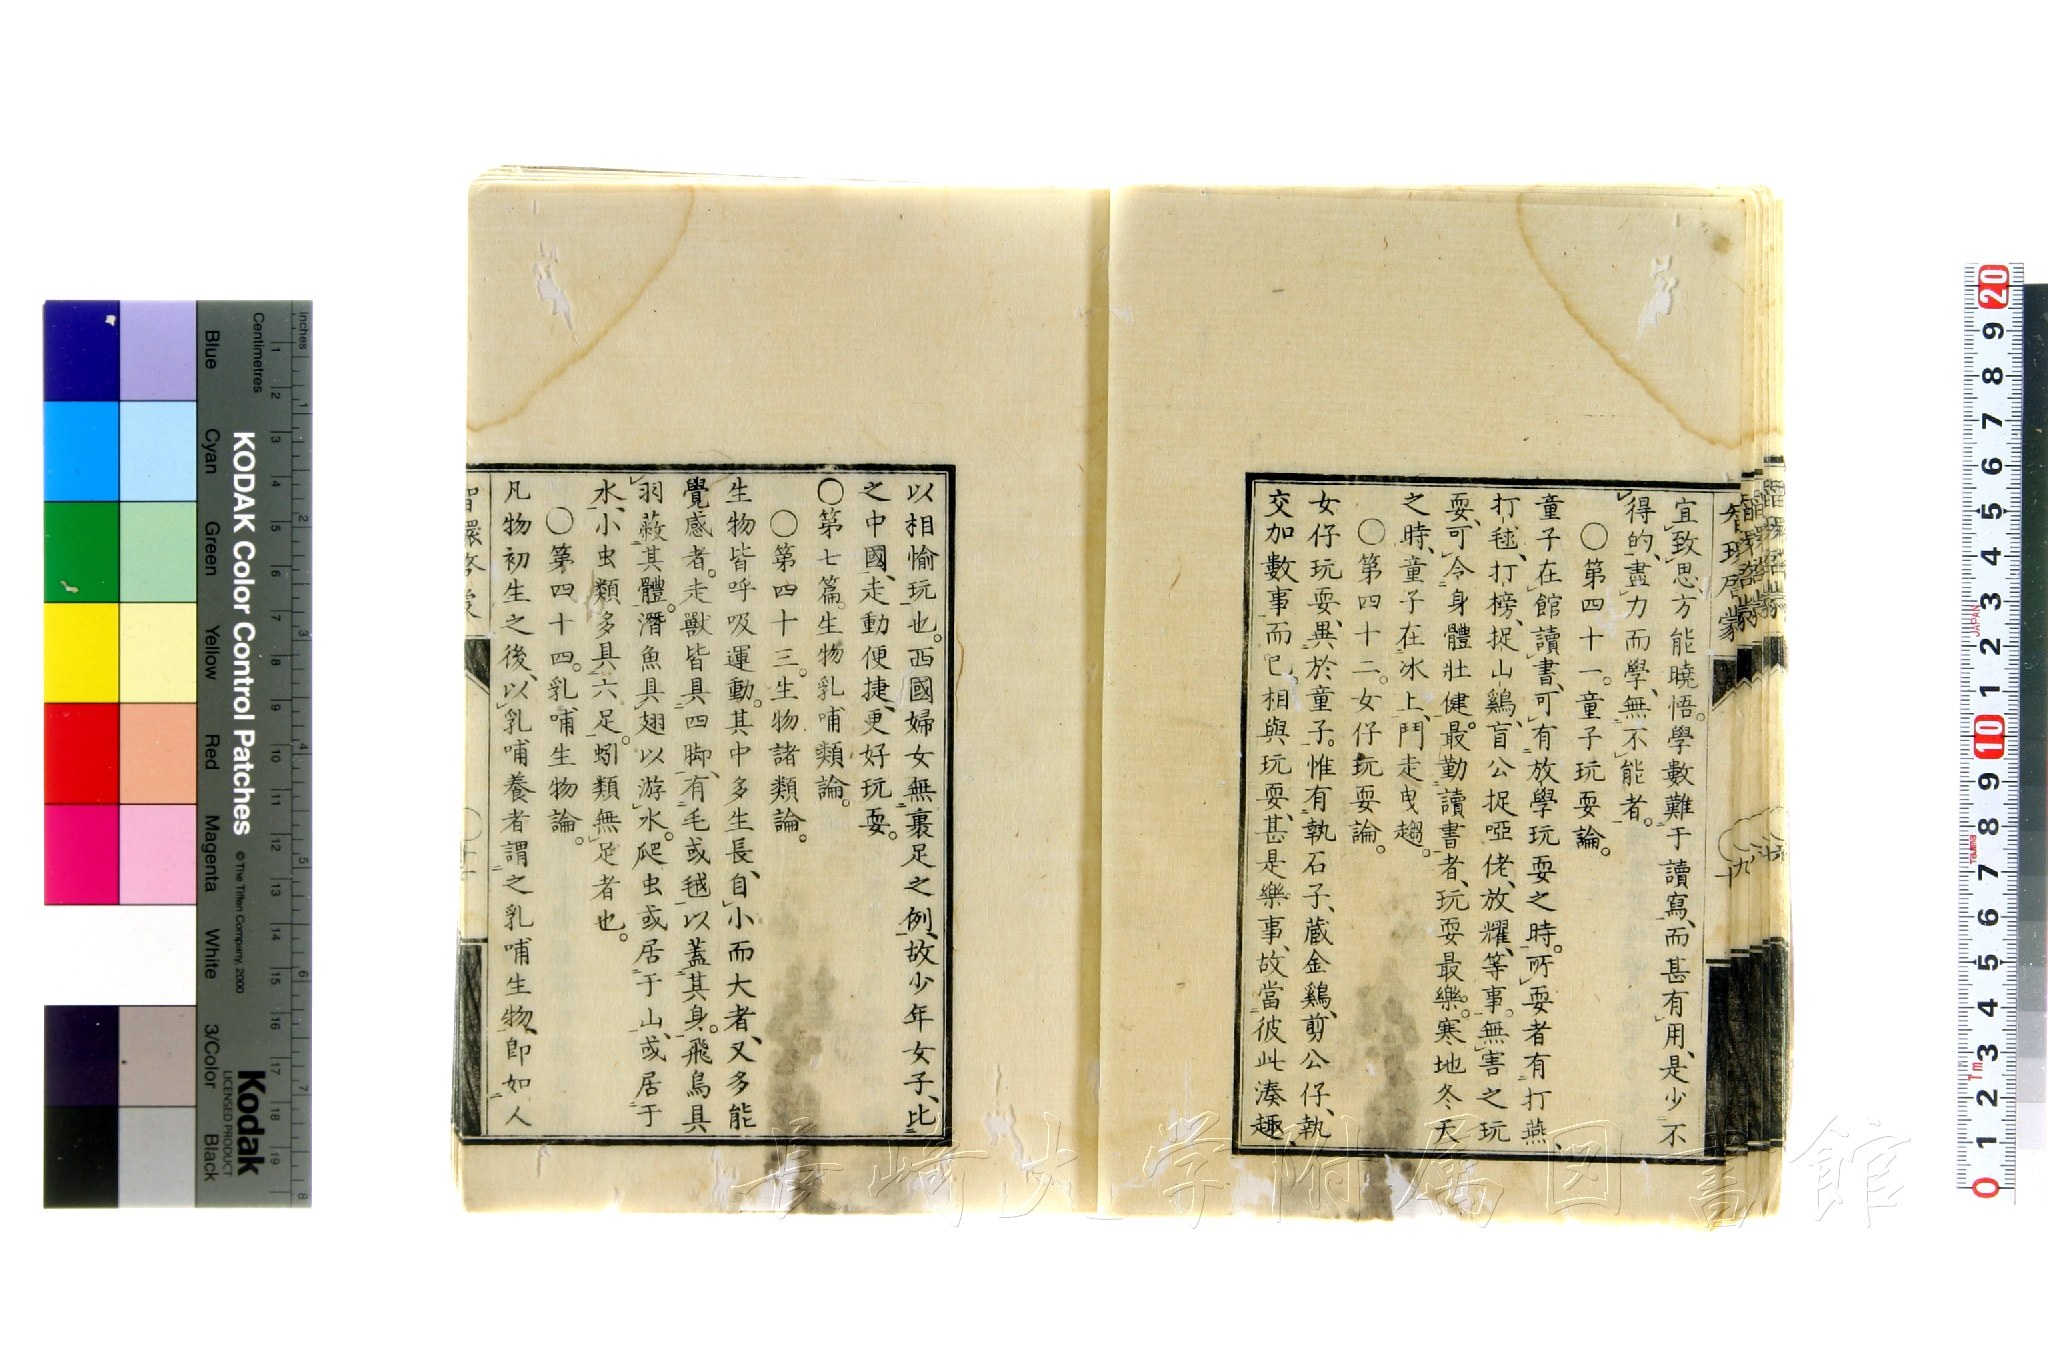 宜致思方能曉悟。學數難于讀寫、而甚有用、是少不
得的、盡力而學、無不能者。
〇第四十一。童子玩耍論。
童子在館讀書、可有放學玩耍之時。所耍者有打燕、
打毬、打榜、捉山鷄、盲公捉啞佬、放耀、等事。無害之玩
耍、可令身體壯健。最勤讀書者、玩耍最樂。寒地冬天
之時、童子在冰上、鬥走曳趨。
〇第四十二。女仔玩耍論。
女仔玩耍、異於童子。惟有執石子、蔵金鷄、剪公仔、執
交加數事而已。相與玩耍、甚是樂事、故當彼此湊趣、
以相愉玩也。西國婦女無裹足之例、故少年女子、比
之中國、走動便捷、更好玩耍。
〇第七篇。生物乳哺類論。
〇第四十三。生物諸類論。
生物皆呼吸運動。其中多生長、自小而大者、又多能
覺感者。走獸皆具四脚、有毛或毧以蓋其身。飛鳥具
羽蔽其體。潛魚具翅以游水。爬虫或居于山、或居于
水、小虫類多具六足。蚓類無足者也。
〇第四十四。乳哺生物論。
凡物初生之後、以乳哺養者謂之乳哺生物、即如人
智環啓蒙
九
KODAK Color Control Patches
© The Tiffen Company, 2000
Kodak
LICENSED PRODUCT
Inches
Centimetres
1 2 3 4 5 6 7 8
1 2 3 4 5 6 7 8 9 10 11 12 13 14 15 16 17 18 19
Blue
Cyan
Green
Yellow
Red
Magenta
White
3/Color
Black
20 9 8 7 6 5 4 3 2 1 10 9 8 7 6 5 4 3 2 1 0
JAPAN
Tajima
1m
長崎大学附属図書館